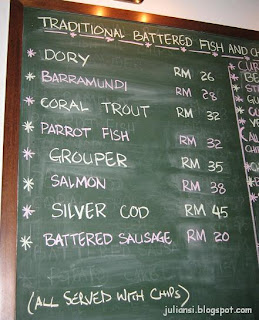 TRADITIONAL BATTERED FISH AND CH
* DORY RM 26
* BARRAMUNDI RM 28
* CORAL TROUT RM 32
* PARROT FISH RM 32
* GROUPER RM 35
* SALMON RM 38
* SILVER COD RM 45
* BATTERED SAUSAGE RM 20
(ALL SERVED WITH CHIPS)
juliansi.blogspot.com